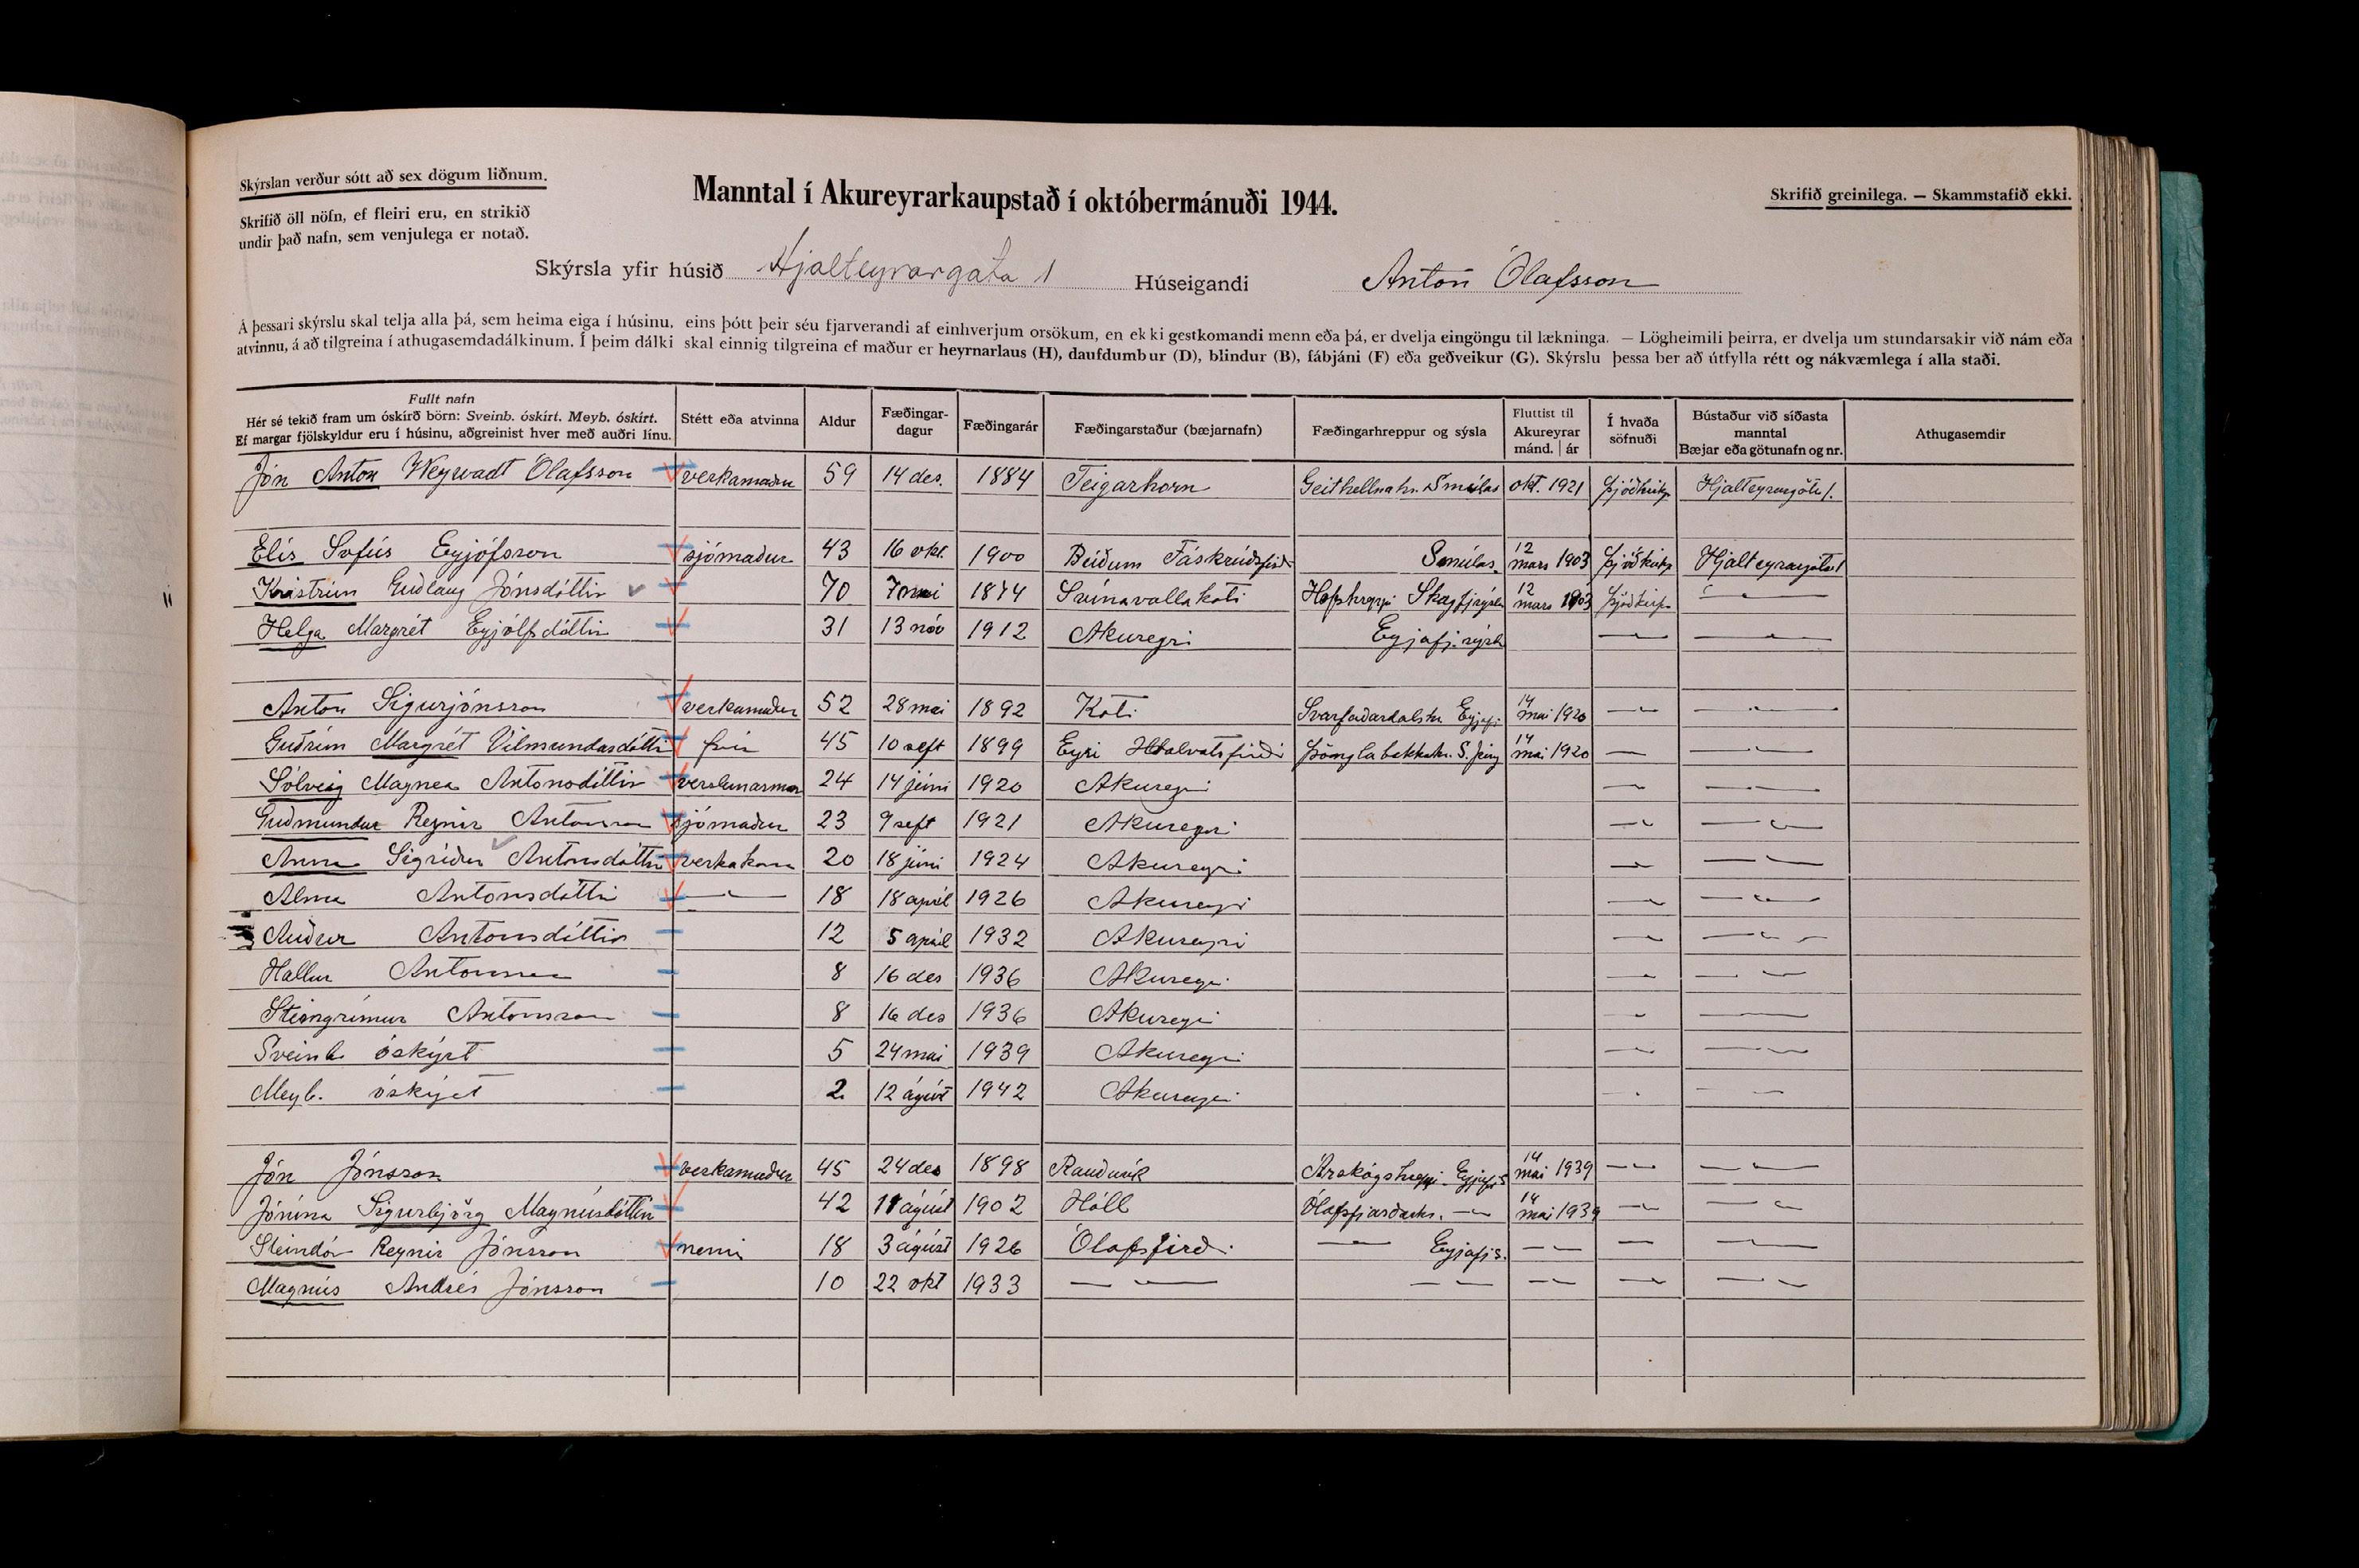 Skýrslan verður sótt að sex dögum liðnum.
Manntal í Akureyrarkaupstað í októbermánuði 1944.
Skrifið greinilega. — Skammstafið ekki.
Skrifið öll nöfn, ef fleiri eru, en strikið
undir það nafn, sem venjulega er notað.
Skýrsla yfir húsið Hjalteyrargata 1 Húseigandi Anton Ólafsson
Á þessari skýrslu skal telja alla þá, sem heima eiga í húsinu, eins þótt þeir séu fjarverandi af einhverjum orsökum, en ekki gestkomandi menn eða þá, er dvelja eingöngu til lækninga. — Lögheimili þeirra, er dvelja um stundarsakir við nám eða
atvinnu, á að tilgreina í athugasemdadálkinum. Í þeim dálki skal einnig tilgreina ef maður er heyrnarlaus (H), daufdumbur (D), blindur (B), fábjáni (F) eða geðveikur (G). Skýrslu þessa ber að útfylla rétt og nákvæmlega í alla staði.
Fullt nafn
Hér sé tekið fram um óskírð börn: Sveinb. óskírt. Meyb. óskírt.
Ef margar fjölskyldur eru í húsinu, aðgreinist hver með auðri línu.
Stétt eða atvinna
Aldur
Fæðingar-
dagur
Fæðingarár
Fæðingarstaður (bæjarnafn)
Fæðingarhreppur og sýsla
Fluttist til
Akureyrar
mánd. | ár
Í hvaða
söfnuði
Bústaður við síðasta
manntal
Bæjar eða götunafn og nr.
Athugasemdir
Jón Anton Weywadt Ólafsson verkamaður 59 14 des. 1884 Teigarhorn Geithellnahr. Smúlas okt. 1921 Þjóðkirkj Hjalteyrargötu 1.
Elís Sofús Eyjófsson sjómaður 43 16 okt. 1900 Búðum Fáskrúðsfirði Smúlas. 12 mars 1903 Þjóðkirkj Hjalteyrargötu 1
Kristrún Guðlaug Jónsdóttir 70 7 mai 1874 Svínavallakoti Hofshreppi Skagfjsýsla 12 mars 1903 Þjóðkirkj
Helga Margrét Eyjólfsdóttir 31 13 nóv 1912 Akureyri Eyjafj.sýsla
Anton Sigurjónsson verkamaður 52 28 mai 1892 Koti Svarfaðardalshr Eyjafj. 14 mai 1920
Guðrún Margrét Vilmundasdóttir frú 45 10 sept 1899 Eyri Hvalvatsfirði Þönglabakkahr. S. Þing 14 mai 1920
Sólveig Magnea Antonsdóttir verslunarmær 24 14 júni 1920 Akureyri
Guðmundur Reynir Antonsson sjómaður 23 9 sept 1921 Akureyri
Anna Sigríður Antonsdóttir verkakona 20 18 júni 1924 Akureyri
Alma Antonsdóttir 18 18 apríl 1926 Akureyri
Auður Antonsdóttir 12 5 apríl 1932 Akureyri
Hallur Antonsson 8 16 des 1936 Akureyri
Steingrímur Antonsson 8 16 des 1936 Akureyri
Sveinb. óskýrt 5 24 mai 1939 Akureyri
Meyb. óskýrt 2 12 ágúst 1942 Akureyri
Jón Jónsson verkamaður 45 24 des 1898 Rauðuvík Árskógshreppi Eyjafjs 14 mai 1939
Jónína Sigurbjörg Magnúsdóttir 42 11 ágúst 1902 Hóll Ólafsfjarðarhr. 14 mai 1939
Steindór Reynir Jónsson nemi 18 3 ágúst 1926 Ólafsfirði Eyjafjs.
Magnús Andrés Jónsson 10 22 okt 1933